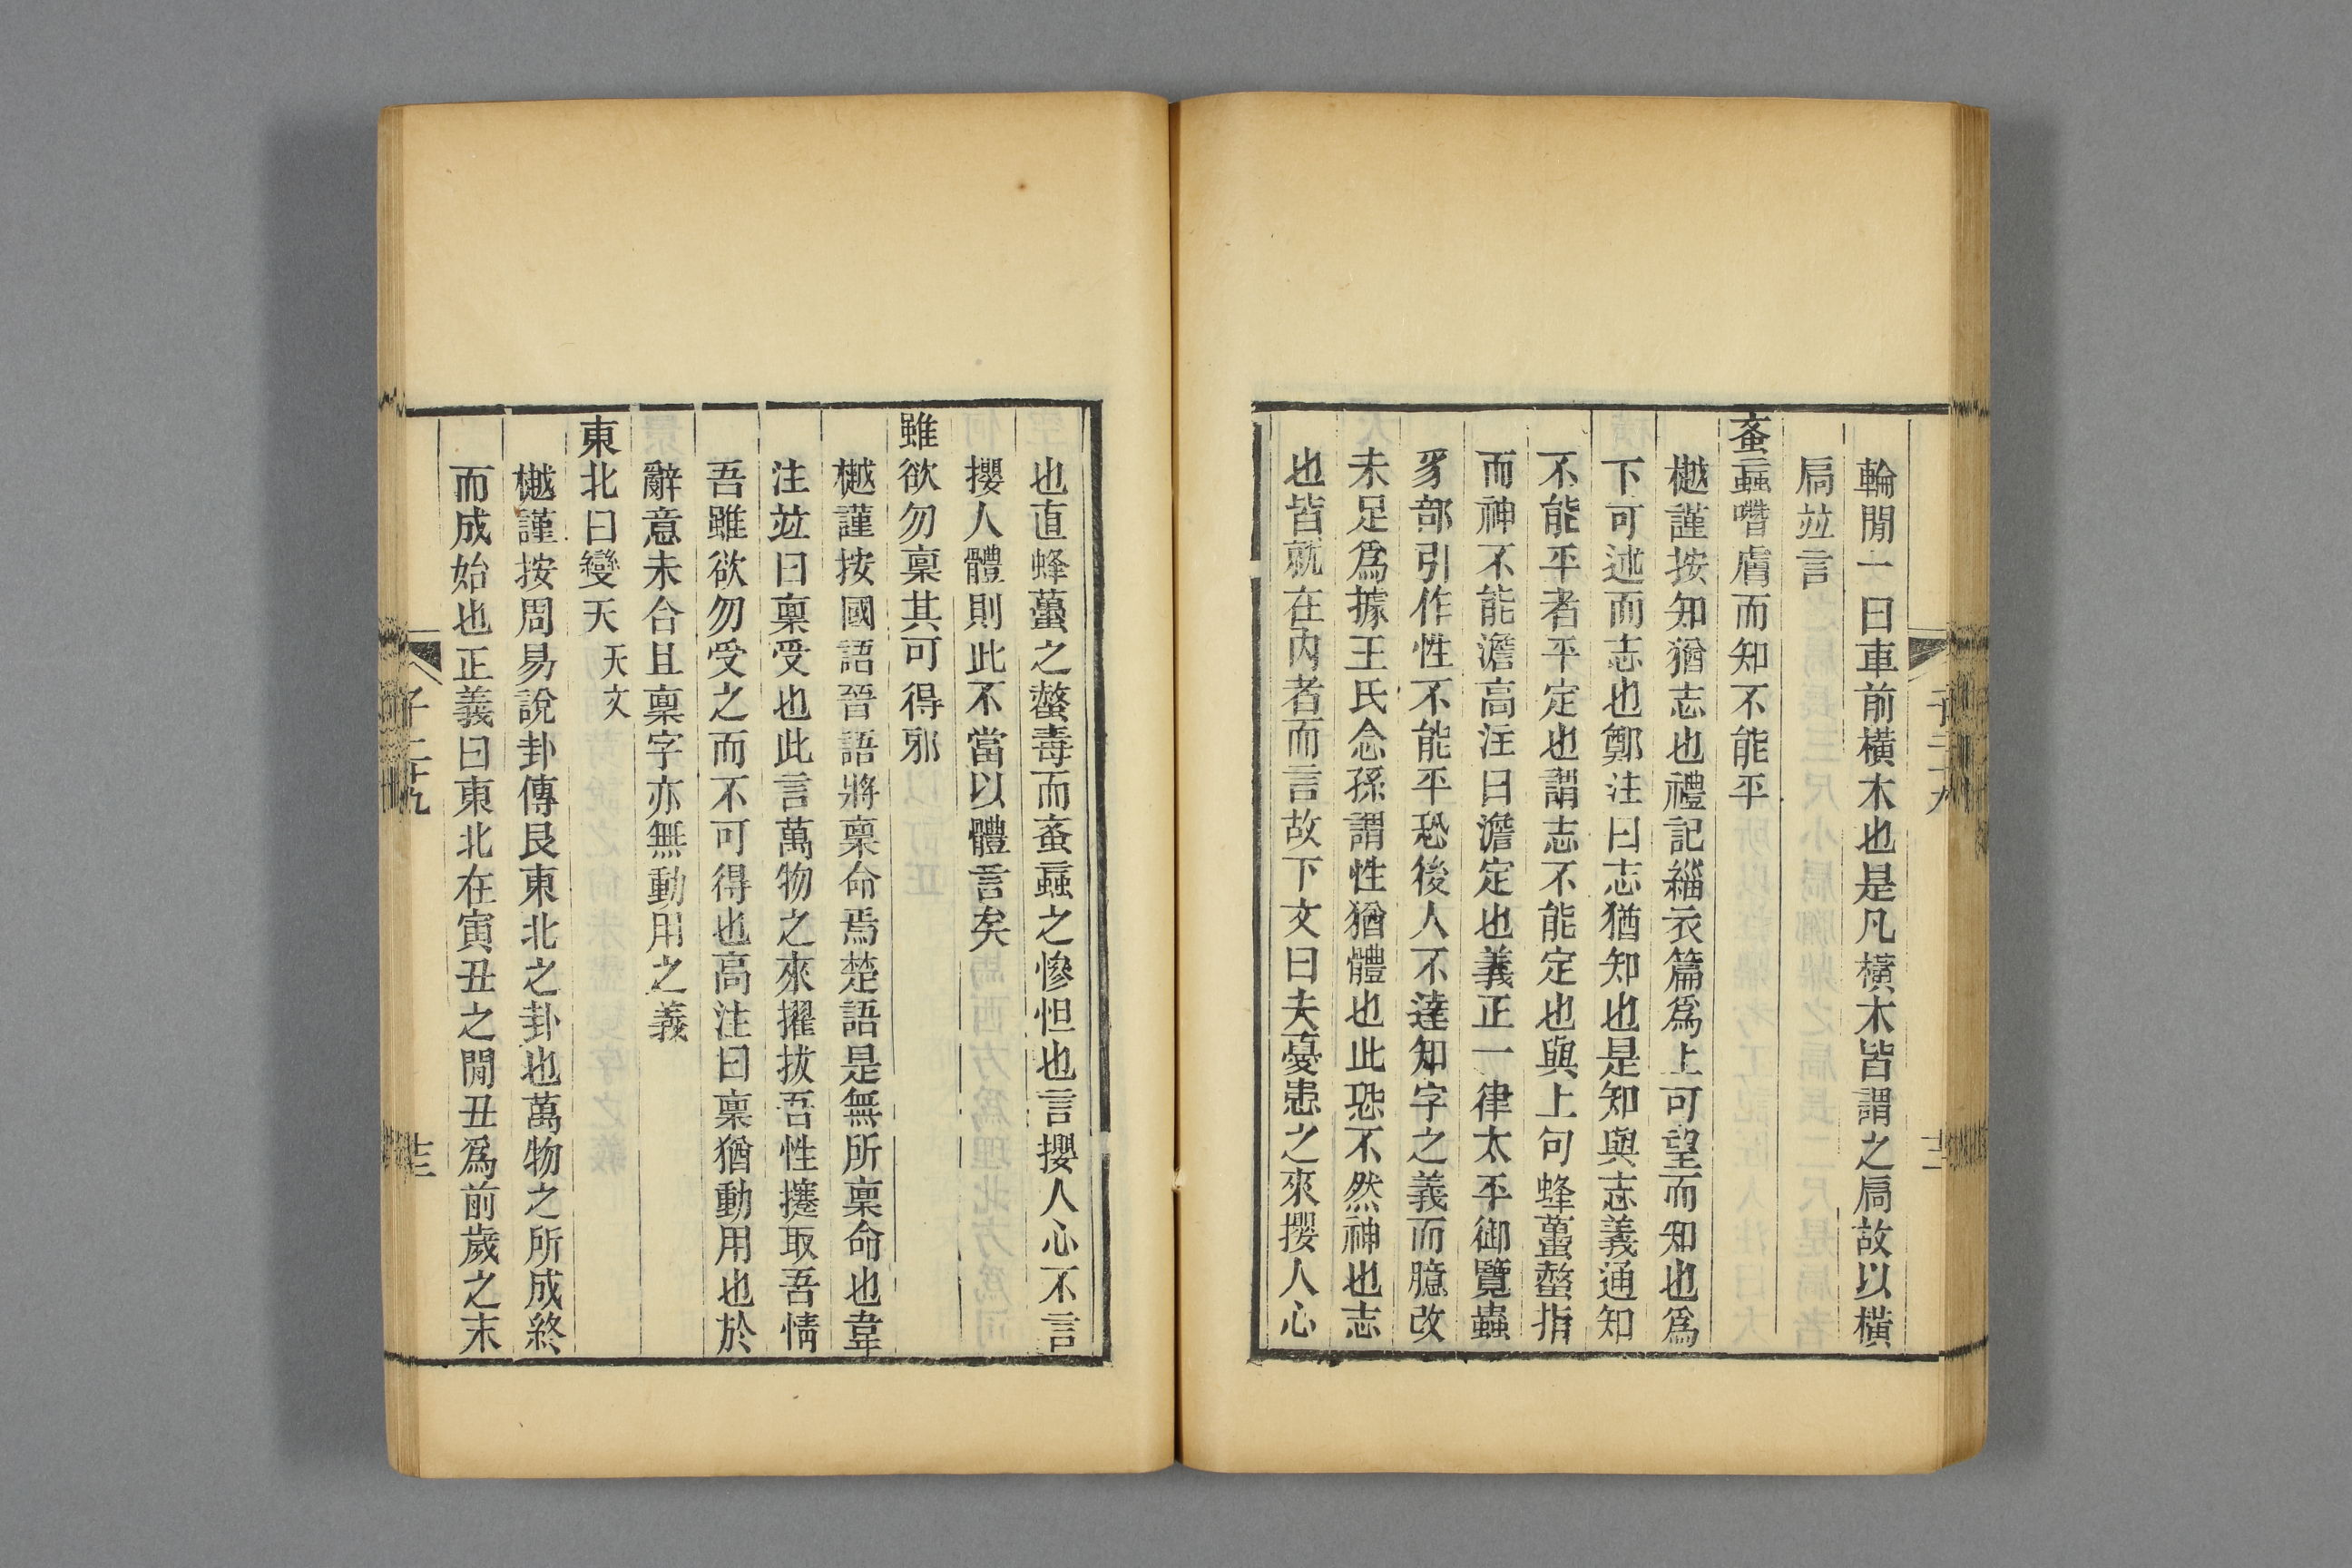 輪閒一曰車前橫木也是凡橫木皆謂之扃故以橫
扃竝言
蚉蝨噆膚而知不能平
樾謹按知猶志也禮記緇衣篇爲上可望而知也爲
下可述而志也鄭注曰志猶知也是知與志義通知
不能平者平定也謂志不能定也與上句蜂蠆螫指
而神不能澹高注曰澹定也義正一律太平御覽蟲
豸部引作性不能平恐後人不達知字之義而臆改
未足爲據王氏念孫謂性猶體也此恐不然神也志
也皆就在內者而言故下文曰夫憂患之來攖人心
也直蜂蠆之螫毒而蚉蝨之慘怛也言攖人心不言
攖人體則此不當以體言矣
雖欲勿稟其可得邪
樾謹按國語晉語將稟命焉楚語是無所稟命也韋
注竝曰稟受也此言萬物之來擢拔吾性攓取吾情
吾雖欲勿受之而不可得也高注曰稟猶動用也於
辭意未合且稟字亦無動用之義
東北曰變天 天文
樾謹按周易說卦傳艮東北之卦也萬物之所成終
而成始也正義曰東北在寅丑之閒丑爲前歲之末